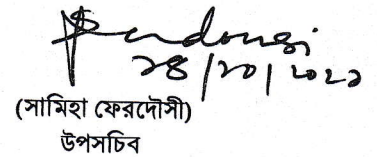 ২৪/১০/২০২১
(সামিহা ফেরদৌসী)
উপসচিব